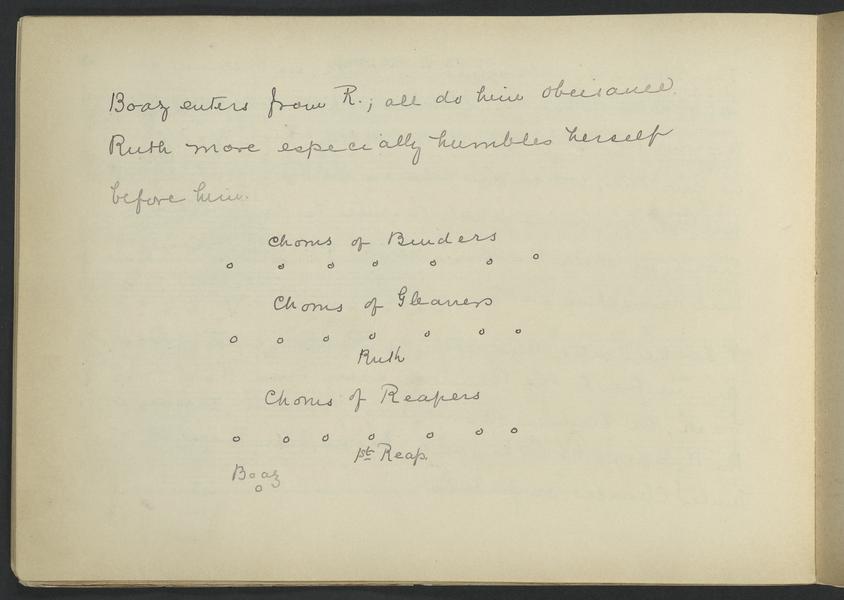 Boaz enters from R.; all do him obeisance.
Ruth more especially humbles herself
before him.
Chorus of Binders
Chorus of Gleaners
Ruth
Chorus of Reapers
1st Reap.
Boaz